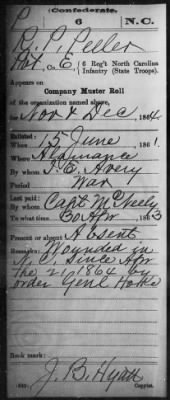 Confederate.
6
N.C.
P. P. Peeler
Co. E, 6 Reg't North Carolina
Infantry (State Troops).
Appears on
Company Muster Roll
of the organization named above,
for Nov & Dec, 1864.
Enlisted:
When 15 June, 1861.
Where Alamance
By whom I. E. Avery
Period War
Last paid:
By whom Capt McNeely
To what time 30 Apr, 1863
Present or absent Absent
Remarks: Wounded in
N. C. Since Apr
the 21, 1864 by
order Genl Hoke
Book mark:
J. B. Hyatt
Copyist.